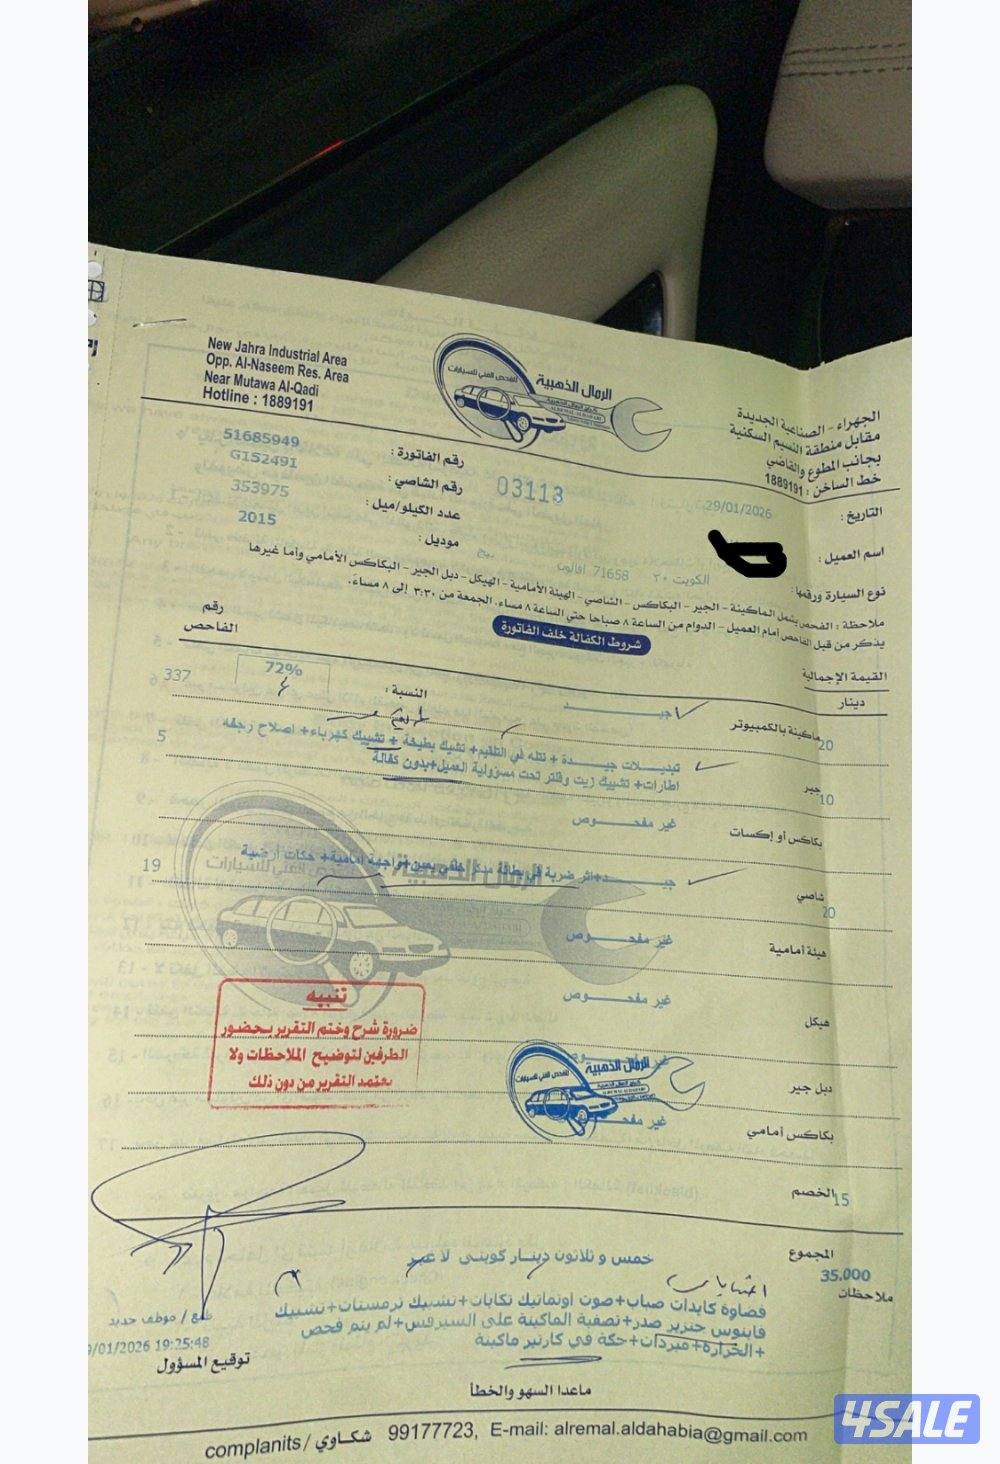 New Jahra Industrial Area
Opp. Al-Naseem Res. Area
Near Mutawa Al-Qadi
Hotline : 1889191
الرمال الذهبية
للفحص الفني للسيارات
ALREMAL ALDAHABI
الجهراء - الصناعية الجديدة
مقابل منطقة النسيم السكنية
بجانب المطوع والقاضي
خط الساخن : 1889191
رقم الفاتورة : 51685949
رقم الشاصي : G152491
عدد الكيلو/ميل : 353975
موديل : 2015
03113
التاريخ : 29/01/2026
اسم العميل :
نوع السيارة ورقمها : الكويت ٢٠ 71658 افالون
ملاحظة : الفحص يشمل الماكينة - الجير - البكاكس - الشاصي - الهيئة الأمامية - الهيكل - دبل الجير - البكاكس الأمامي وأما غيرها
يذكر من قبل الفاحص أمام العميل - الدوام من الساعة ٨ صباحا حتى الساعة ٨ مساء، الجمعة من ٣:٣٠ إلى ٨ مساءً.
شروط الكفالة خلف الفاتورة
القيمة الإجمالية
دينار
رقم
الفاحص
ماكينة بالكمبيوتر 20 جيد النسبة : 72% 337
جير 10 تبديلات جيدة + نتله في التلقيم + تشيك بطيخة + تشييك كهرباء + اصلاح رجفه 5
اطارات + تشييك زيت وفلتر تحت مسؤولية العميل + بدون كفالة
بكاكس أو إكسات غير مفحوص
شاصي 20 جيد + اثر ضربة في بطانة مدكر خلفي يمين + واجهة امامية + حكات ارضية 19
هيئة أمامية غير مفحوص
هيكل غير مفحوص
دبل جير
بكاكس أمامي غير مفحوص
تنبيه
ضرورة شرح وختم التقرير بحضور
الطرفين لتوضيح الملاحظات ولا
يعتمد التقرير من دون ذلك
الرمال الذهبية
للفحص الفني للسيارات
الخصم 15
المجموع خمس و ثلاثون دينار كويتي لا غير
35.000
ملاحظات
قضاوة كايدات صباب + صوت اوتماتيك تكايات + تشييك ترمستات + تشييك
فاينوس جنزير صدر + تصفية الماكينة على السيرفس + لم يتم فحص
+ الحرارة + مبردات + حكة في كارتير ماكينة
موظف جديد
/01/2026 19:25:48
توقيع المسؤول
ماعدا السهو والخطأ
complanits / شكاوي 99177723, E-mail: alremal.aldahabia@gmail.com
4SALE